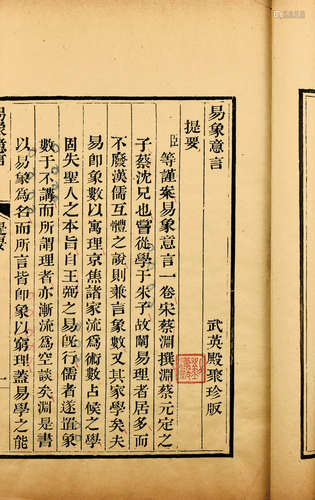 易象意言
武英殿聚珍版
提要
臣等謹案易象意言一卷宋蔡淵撰淵蔡元定之
子蔡沈兄也嘗從學于朱子故闡易理者居多而
不廢漢儒互體之說則兼言象數又其家學矣夫
易即象數以寓理京焦諸家流爲術數占候之學
固失聖人之本旨自王弼之易旣行儒者遂置象
數于不講而所謂理者亦漸流爲空談矣淵是書
以易象爲名而所言皆即象以窮理蓋易學之能
易象意言
提要
一